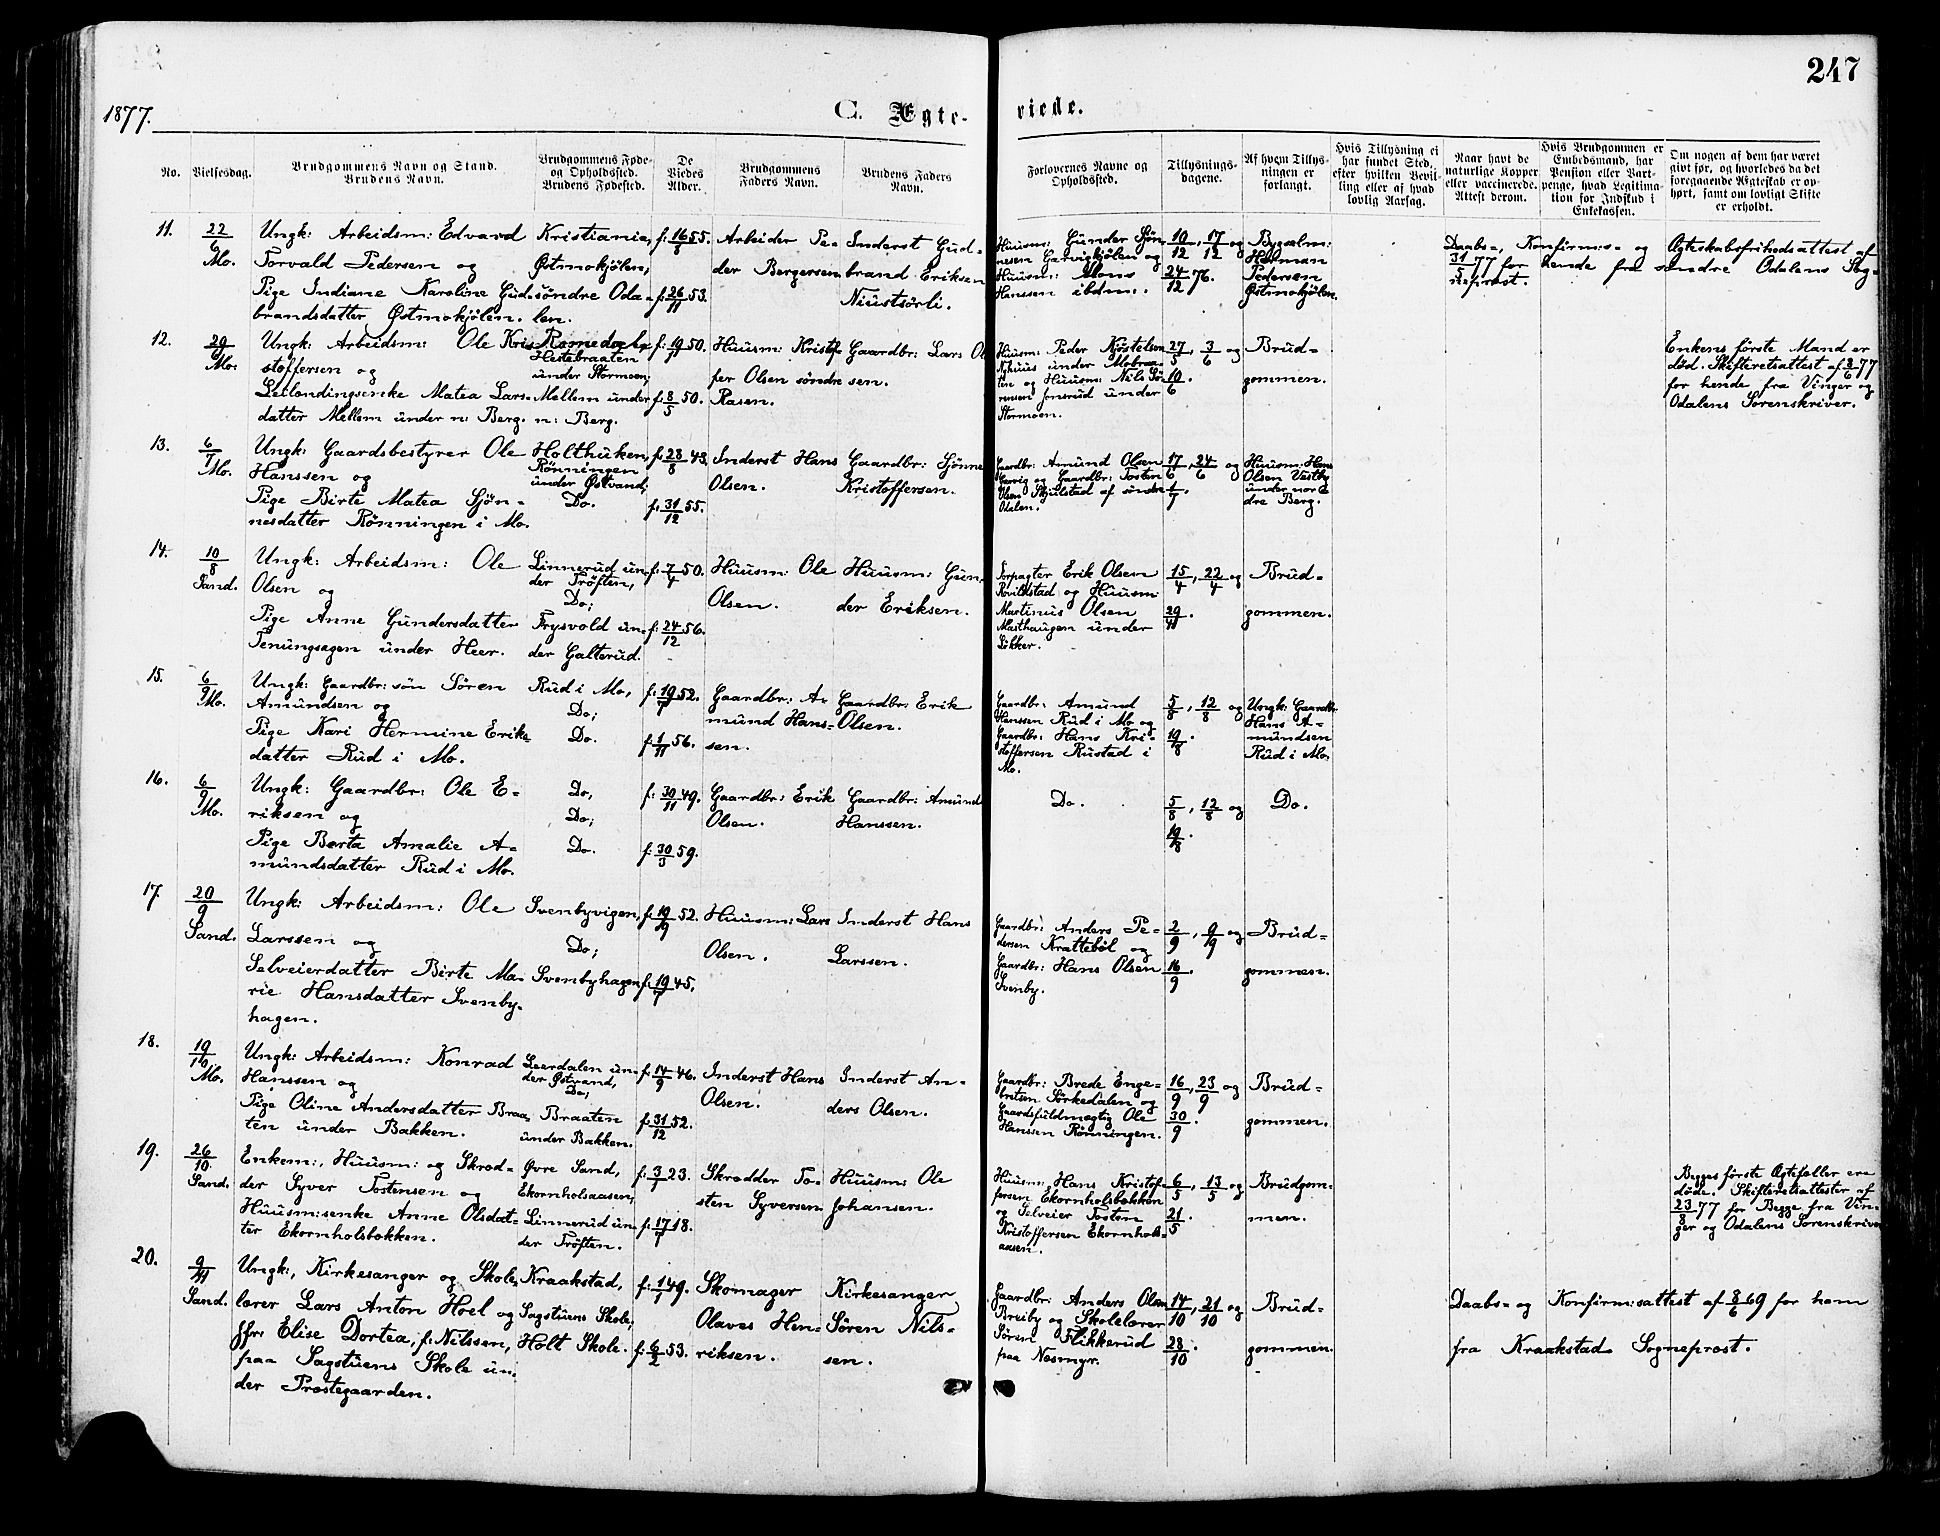 247
1877.
C. Ægte-
viede.
No.
Vielsesdag.
Brudgommens Navn og Stand.
Brudens Navn.
Brudgommens Føde-
og Opholdssted.
Brudens Fødested.
De
Viedes
Alder.
Brudgommens
Faders Navn.
Brudens Faders
Navn.
Forlovernes Navne og
Opholdssted.
Tillysnings-
dagene.
Af hvem Tillys-
ningen er
forlangt.
Hvis Tillysning ei
har fundet Sted,
efter hvilken Bevil-
ling eller af hvad
lovlig Aarsag.
Naar havt de
naturlige Kopper
eller vaccinerede.
Attest derom.
Hvis Brudgommen er
Embedsmand, har
Pension eller Vart-
penge, hvad Legitima-
tion for Indskud i
Enkekassen.
Om nogen af dem har været
givt før, og hvorledes da det
foregaaende Ægteskab er op-
hørt, samt om lovligt Skifte
er erholdt.
11.
22/6
Mo.
Ungk: Arbeidsm: Edvard
Torvald Pedersen og
Pige Indiane Karoline Gud-
brandsdatter Østmokjølen.
Kristiania,
Østmokjølen;
søndre Oda-
len.
f: 16/5 55.
f: 26/11 53.
Arbeider Pe-
der Bergersen
Inderst Gud-
brand Eriksen
Niustsørli.
Huusm: Gunder Sjøn-
nesen Garvigkjølen og
Huusm: Mons
Hanssen ibdm:.
10/12, 17/12 og
24/12 76.
Bygselm:
Herman
Pedersen
Østmokjølen.
Daabs-, Konfirm:s- og Ægteskabsfrihedsattest af
31/5 77 for hende fra søndre Odalens Sog-
neprost.
12.
29/6
Mo:
Ungk: Arbeidsm: Ole Kri-
stoffersen og
Leilændingsenke Matea Lars-
datter Mellem under n: Berg.
Romedal,
Hestebraaten
under Stormoen;
Mellem under
n: Berg.
f: 19/11 50.
f: 8/5 50.
Huusm: Kristof-
fer Olsen søndre
Rasen.
Gaardbr: Lars Ol-
sen.
Huusm: Peder Kjøstelsen
Nyhuus under Mobraa-
ten og Huusm: Nils Sø-
rensen Jonsrud under
Stormoen.
27/5, 3/6 og
10/6.
Brud-
gommen.
Enkens første Mand er
død. Skifteretsattest af 2/6 77
for hende fra Vinger og
Odalens Sorenskriver.
13.
6/7
Mo.
Ungk: Gaardsbestyrer Ole
Hanssen og
Pige Birte Matea Sjøn-
nesdatter Rønningen i Mo.
Holthuken,
Rønningen
under Østvand;
Do.
f: 28/8 43.
f: 31/12 55.
Inderst Hans
Olsen.
Gaardbr: Sjønne
Kristoffersen.
Gaardbr: Amund Olsen
Garvig og Gaardbr: Tosten
Olsen Skjulstad af søndre
Odalen.
17/6, 24/6 og
1/7.
Huusm: Hans
Olsen Vestby
under nor-
dre Berg.
14.
10/8
Sand.
Ungk: Arbeidsm: Ole
Olsen og
Pige Anne Gundersdatter
Tenungsagen under Heer.
Linnerud un-
der Trøften,
Do;
Frysvold un-
der Galterud.
f: 7/4 50.
f: 24/12 56.
Huusm: Ole
Olsen.
Huusm: Gun-
der Eriksen.
Forpagter Erik Olsen
og Huusm:
Martinus Olsen
Masthaugen under
Løkker.
15/4, 22/4 og
29/4.
Brud-
gommen.
15.
6/9
Mo.
Ungk: Gaardbr: søn Søren
Amundsen og
Pige Kari Hermine Eriks-
datter Rud i Mo.
Rud i Mo,
Do;
Do.
f: 19/7 52.
f: 1/11 56.
Gaardbr: A-
mund Hans-
sen.
Gaardbr: Erik
Olsen.
Gaardbr: Amund
Hanssen Rud i Mo og
Gaardbr: Hans Kri-
stoffersen Rustad i
Mo.
5/8, 12/8 og
19/8.
Ungk: Gaardbr:
Hans A-
mundsen
Rud i Mo.
16.
6/9
Mo.
Ungk: Gaardbr: Ole E-
riksen og
Pige Berta Amalie A-
mundsdatter Rud i Mo.
Do,
Do;
Do.
f: 30/11 49.
f: 30/3 59.
Gaardbr: Erik
Olsen.
Gaardbr: Amund
Hanssen.
Do.
5/8, 12/8 og
19/8.
Do.
17.
20/9
Sand.
Ungk: Arbeidsm: Ole
Larssen og
Selveierdatter Birte Ma-
rie Hansdatter Svenby-
hagen.
Svenbyvigen,
Do;
Svenbyhagen
f: 19/9 52.
f: 19/7 45.
Huusm: Lars
Olsen.
Inderst Hans
Larssen.
Gaardbr: Anders Pe-
dersen Krattebøl og
Gaardbr: Hans Olsen
Svenby.
2/9, 9/9 og
16/9.
Brud-
gommen.
18.
19/10
Mo.
Ungk: Arbeidsm: Konrad
Hanssen og
Pige Oline Andersdatter Braa-
ten under Bakken.
Leerdalen un-
der Østvand,
Do;
Braaten
under Bakken.
f: 14/9 46.
f: 31/12 52.
Inderst Hans
Olsen.
Inderst An-
ders Olsen.
Gaardbr: Brede Enge-
bretsen Sørkedalen og
Gaardsfuldmægtig Ole
Hanssen Rønningen.
16/9, 23/9 og
30/9.
Brud-
gommen.
19.
26/10.
Sand.
Enkem:, Huusm: og Skræd-
der Syver Tostensen og
Huusm:senke Anne Olsdat-
ter Ekornholsbækken.
Øvre Sand,
Ekornholsaasen;
Linnerud un-
der Trøften.
f: 3/7 23.
f: 17/7 18.
Skrædder To-
sten Syversen
Huusm: Ole
Johansen.
Huusm: Hans Kristof-
fersen Ekornholsbækken
og Selveier Tosten
Kristoffersen Ekornhols-
aasen.
6/5, 13/5 og
21/5.
Brudgom-
men.
Begges første Ægtefæller ere
døde. Skifteretsattester af
23/8 77 for Begge fra Vin-
ger og Odalens Sorenskriver
20.
9/11
Sand.
Ungk:, Kirkesanger og Skole-
lærer Lars Anton Hoel og
Jfr: Elise Dortea, f: Nilssen,
paa Sagstuens Skole un-
der Præstegaarden.
Kraakstad,
Sagstuens Skole;
Holt Skole.
f: 1/7 49.
f: 6/2 53.
Skomager
Olaves Hen-
riksen.
Kirkesanger
Søren Nils-
sen.
Gaardbr: Anders Olsen
Breiby og Skolelærer
Søren Flikkerud
paa Næsmyr.
14/10, 21/10 og
28/10.
Brud-
gommen.
Daabs- og Konfirm:sattest af 8/6 69 for ham
fra Kraakstad Sogneprest.